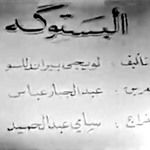 البستوكه
تأليف: لويجي بيراندللو
عبد الجبار عباس
: سامي عبد الحميد